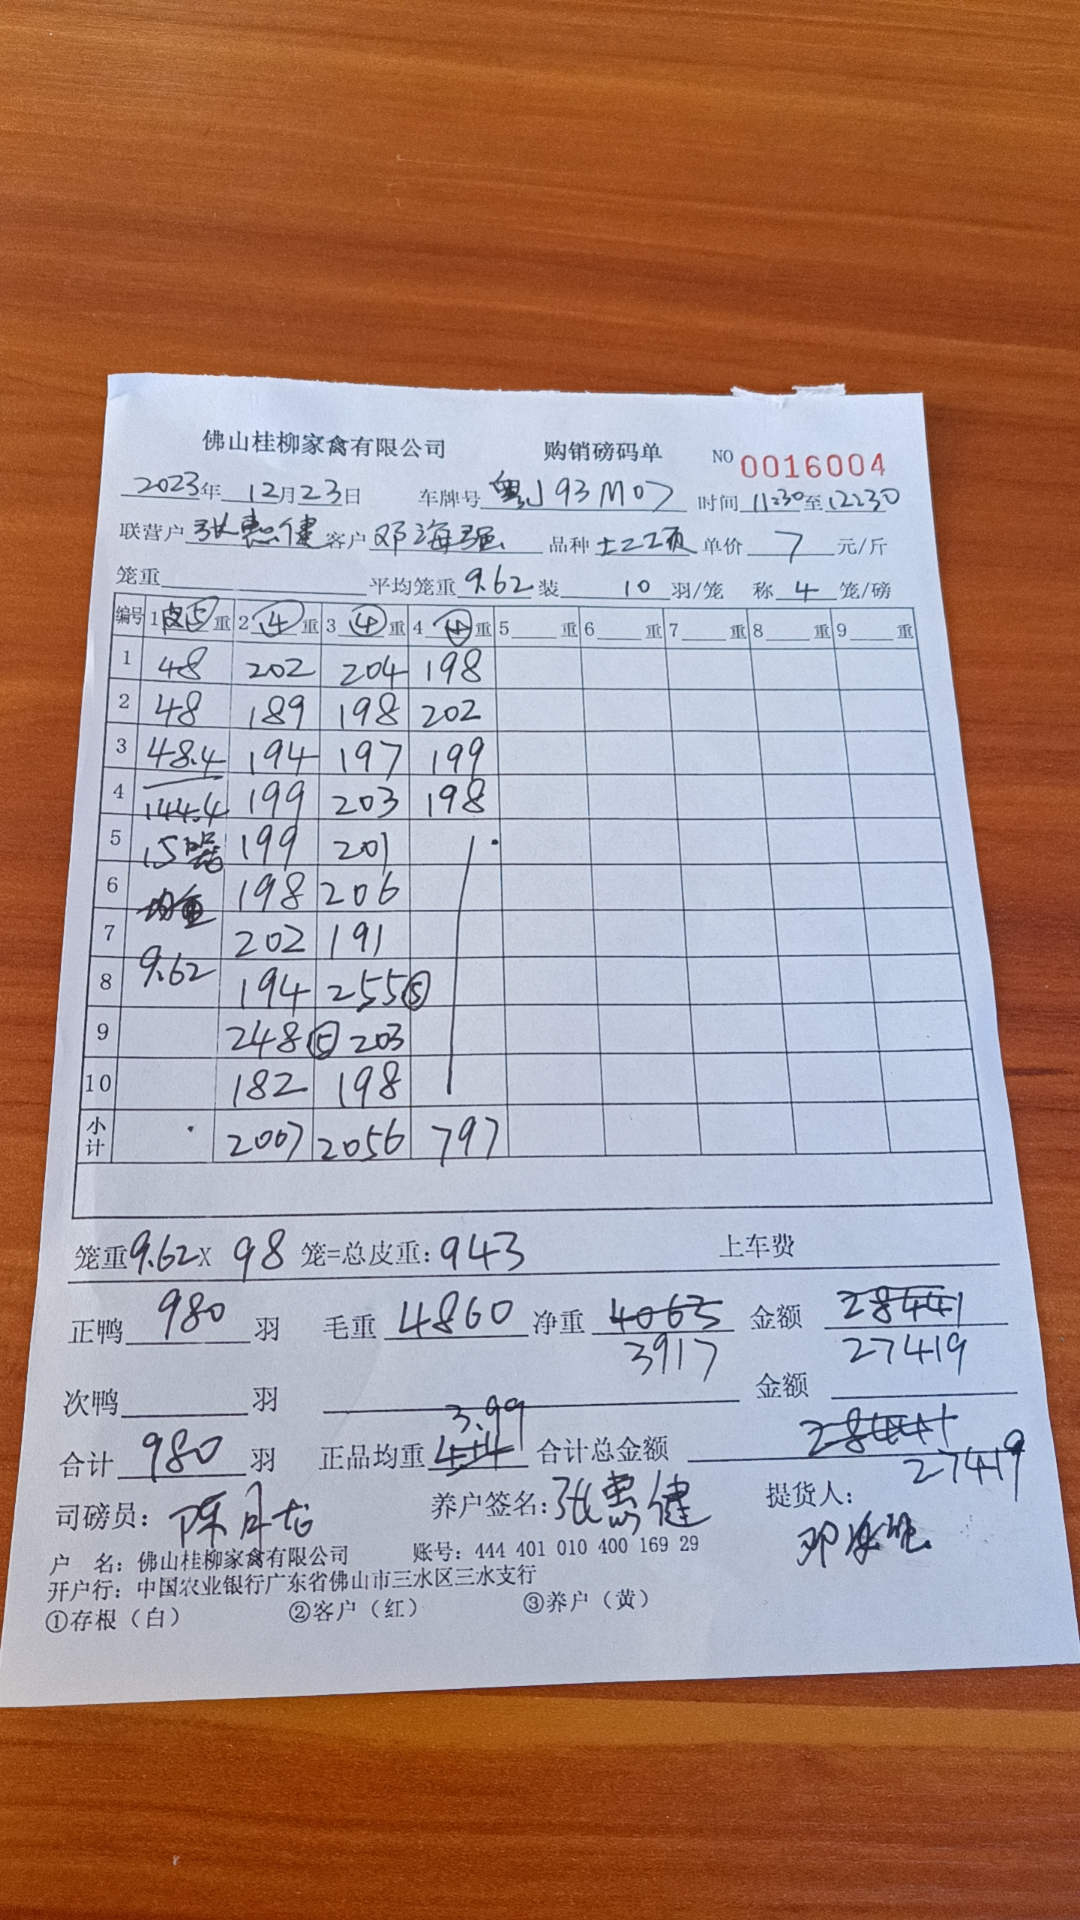 佛山桂柳家禽有限公司 购销磅码单 NO 0016004
2023年 12月23日 车牌号 粤J93M07 时间 11:30至12:30
联营户 张惠健 客户 邓海强 品种 单价 7 元/斤
笼重 平均笼重 9.62 装 10 羽/笼 称 4 笼/磅
编号 1 皮⑤ 重 2 ④ 重 3 ④ 重 4 ④ 重 5 重 6 重 7 重 8 重 9 重
1 48 202 204 198
2 48 189 198 202
3 48.4 194 197 199
4 144.4 199 203 198
5 15笼 199 201
6 均重 198 206
7 202 191
8 9.62 194 255⑤
9 248⑤ 203
10 182 198
小计 2007 2056 797
笼重9.62X 98 笼=总皮重：943 上车费
正鸭 980 羽 毛重 4860 净重 4063 金额 28441
3917 27419
次鸭 羽 金额
3.99 28441
合计 980 羽 正品均重 4.14 合计总金额 27419
司磅员： 养户签名：张惠健 提货人：
户 名：佛山桂柳家禽有限公司 账号：444 401 010 400 169 29
开户行：中国农业银行广东省佛山市三水区三水支行
①存根（白） ②客户（红） ③养户（黄）